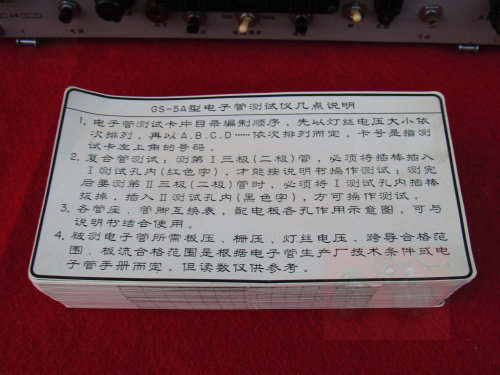 GS-5A型电子管测试仪几点说明
1. 电子管测试卡片目录编制顺序，先以灯丝电压大小依
次排列，再以A.B.C.D……依次排列而定。卡号是指测
试卡左上角的号码。
2. 复合管测试：测第Ⅰ三极(二极)管，必须将插棒插入
Ⅰ测试孔内(红色字)，才能按说明书操作测试；测完
后要测第Ⅱ三极(二极)管时，必须将Ⅰ测试孔内插棒
拔掉，插入Ⅱ测试孔内(黑色字)，方可操作测试。
3. 各管座、管脚互换表，配电板各孔作用示意图，可与
说明书结合使用。
4. 被测电子管所需板压、栅压、灯丝电压、跨导合格范
围、板流合格范围是根据电子管生产厂技术条件或电
子管手册而定，但读数仅供参考。